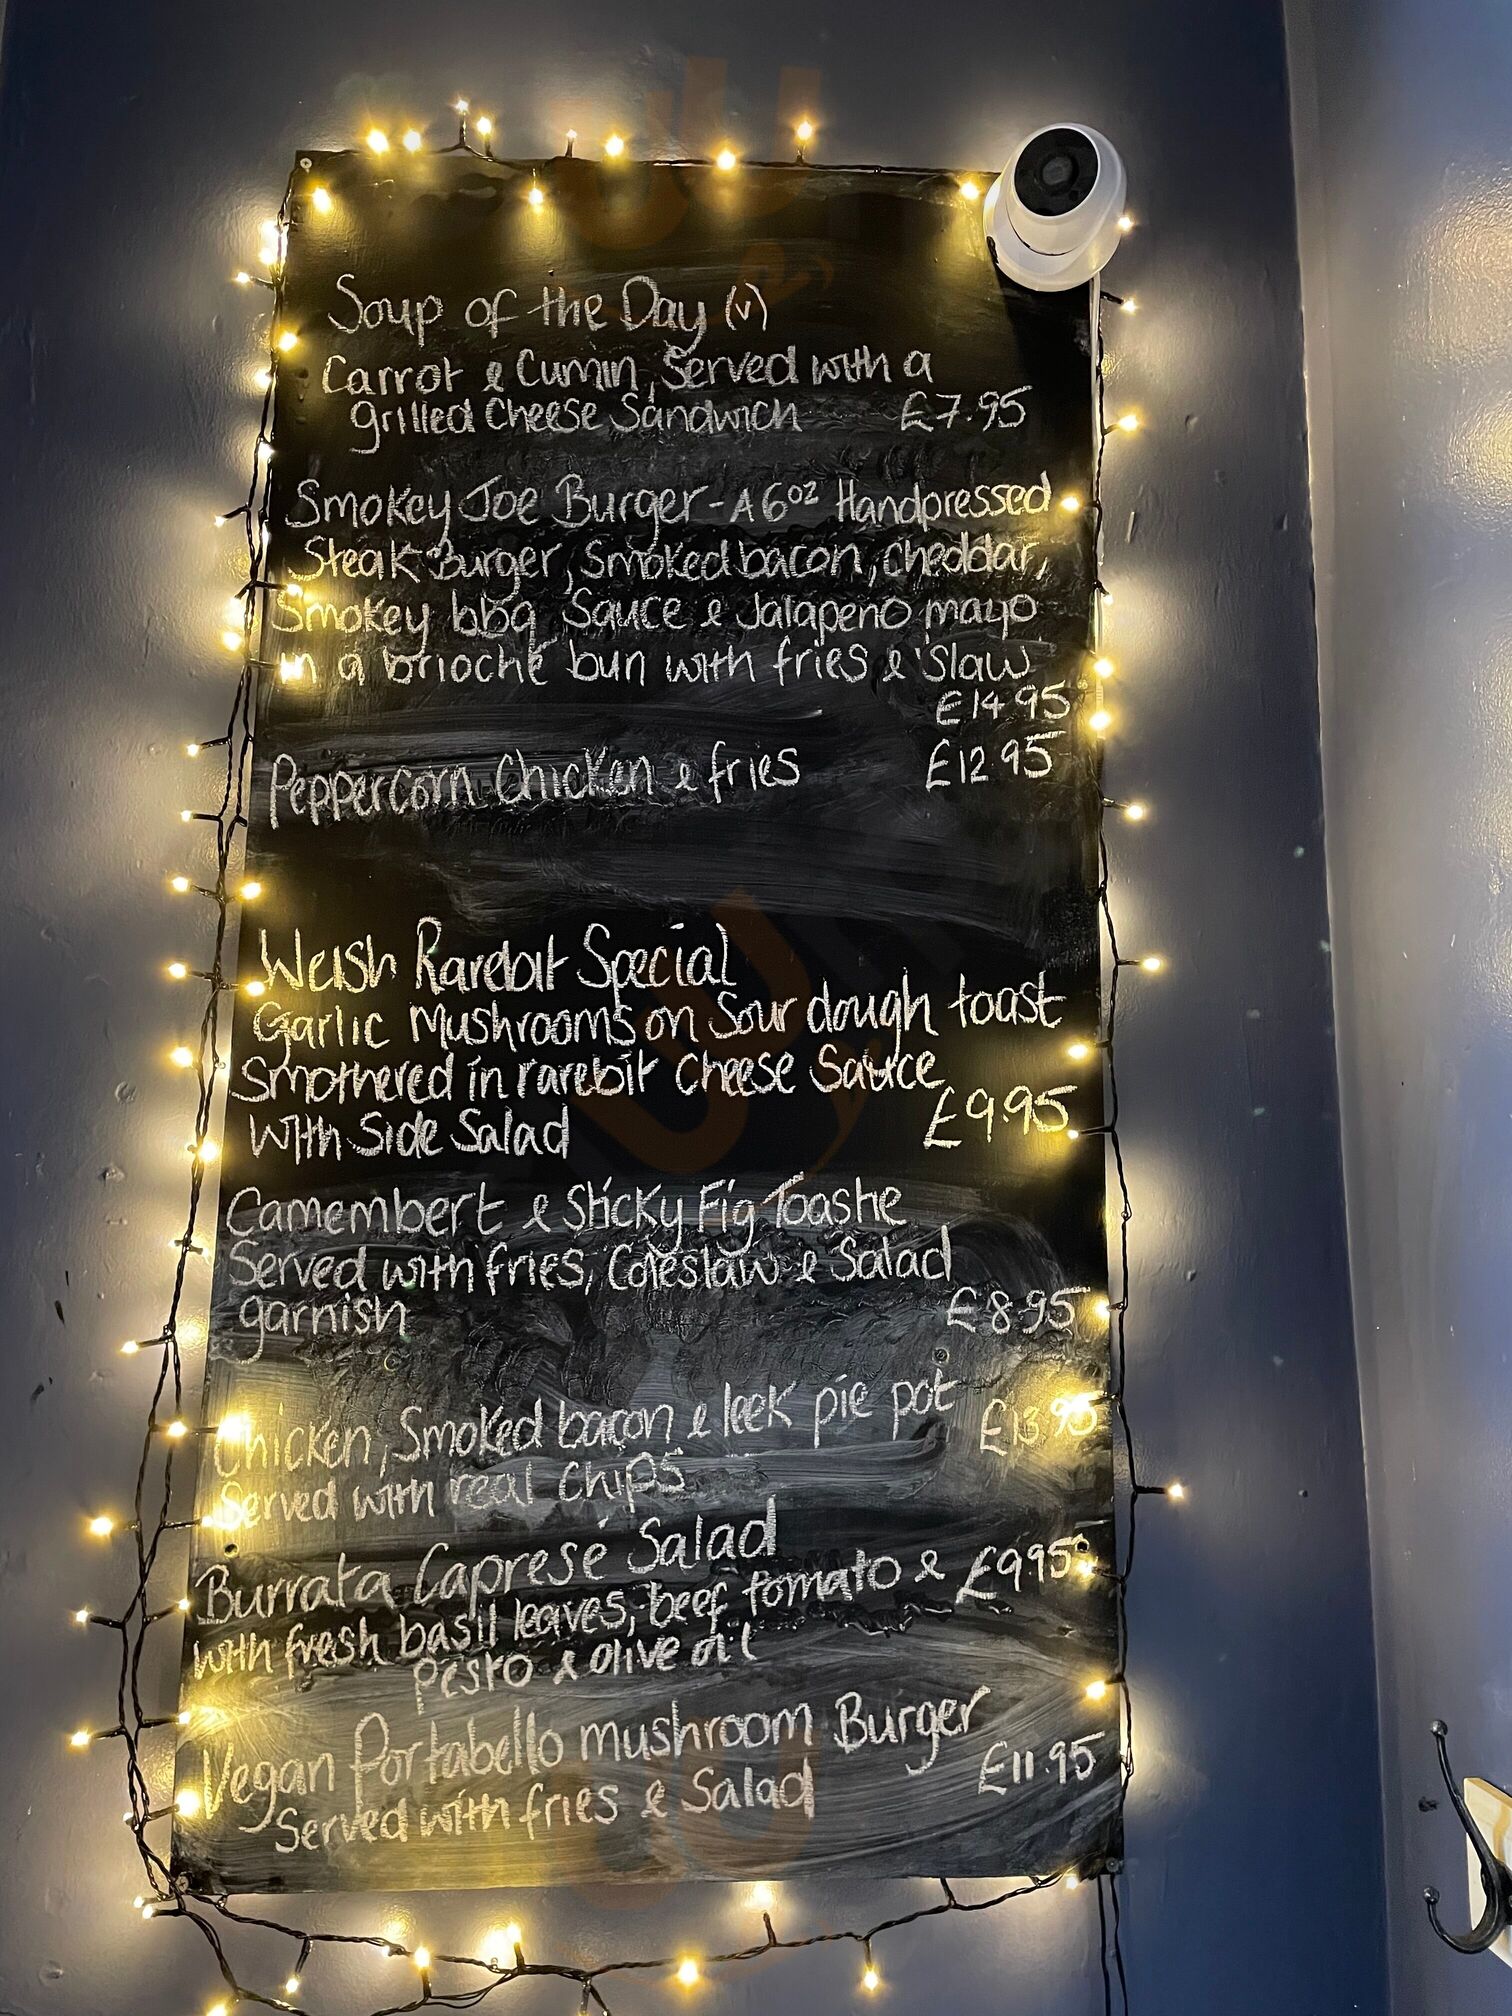 Soup of the Day (v)
Carrot & Cumin, Served with a
grilled Cheese Sandwich £7.95
Smokey Joe Burger - A 6oz Handpressed
Steak Burger, Smoked bacon, cheddar,
Smokey bbq Sauce & Jalapeno mayo
in a brioche bun with fries & 'Slaw
£14.95
Peppercorn Chicken & fries £12.95
Welsh Rarebit Special
Garlic Mushrooms on Sour dough toast
Smothered in rarebit Cheese Sauce
with Side Salad £9.95
Camembert & Sticky Fig Toastie
Served with fries, Coleslaw & Salad
garnish £8.95
Chicken, Smoked bacon & leek pie pot £13.95
Served with real Chips
Burrata Caprese Salad
with fresh basil leaves, beef tomato & £9.95
pesto & olive oil
Vegan Portabello mushroom Burger
Served with fries & Salad £11.95